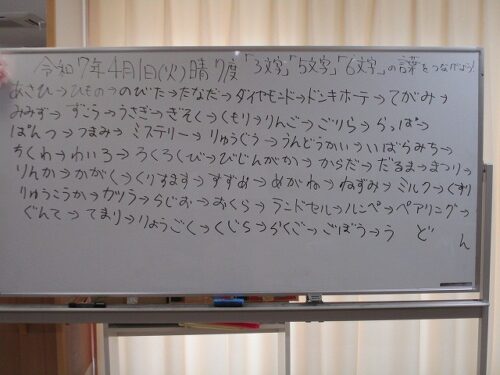 令和7年4月1日(火)晴り度「3文字」「5文字」「6文字」の言葉をつなげよう!
あさひ→ひもの→のびた→たなだ→ダイヤモンド→ドンキホーテ→てがみ→
みみず→ずこう→うさぎ→ぎえそく→くもり→りんご→ごりら→らっぱ→
ぱんつ→つまみ→ミステリー→りゅうぐう→うんどうかい→いばらみち→
ちくわ→わいろ→ろくろくび→びじんがか→からだ→だるま→まつり→
りんか→かがく→くりすます→すずめ→めがね→ねずみ→ミルク→くすり
りゅうこうか→カツラ→らじお→おくら→ランドセル→ルンペ→ペアリング→
ぐんて→てまり→りょうごく→くじら→らくご→ごぼう→う ど ん